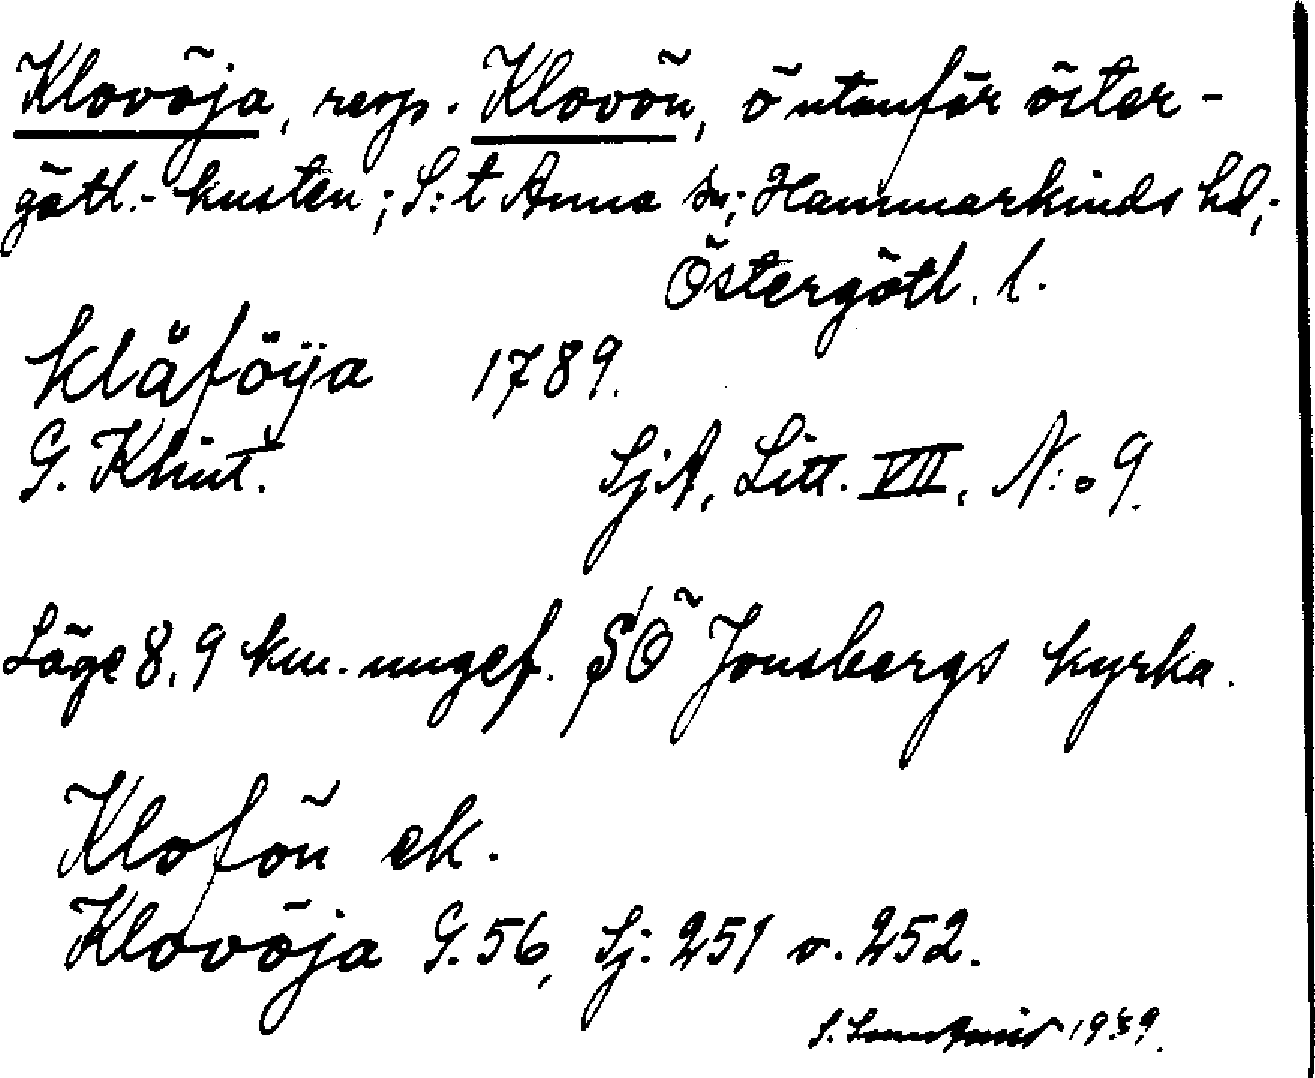 Klovöja, resp. Klovön, ö utanför öster-
götl.-kusten; S:t Anna sn; Hammarkinds hd;
Östergötl. l.
Kläföija 1789.
G. Klint. SjA, Litt. VII, N:o 9.
Läge 8,9 km. ungef. SÖ Jonsbergs kyrka.
Klofön ek.
Klovöja G. 56, Sj: 251 o. 252.
S. 1939.